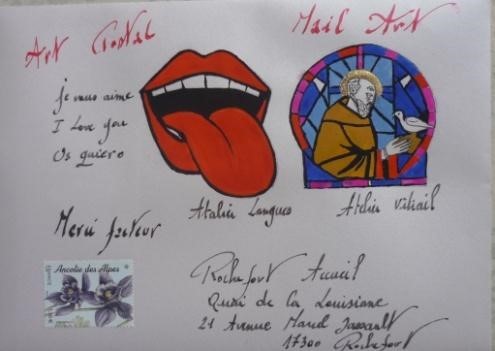 Art Postal
Mail Art
je vous aime
I Love you
Os quiero
Atelier Langues
Atelier Vitrail
Merci facteur
Ancolie des Alpes
Rochefort Accueil
Quai de la Louisiane
21 Avenue Marcel Dassault
17300 Rochefort